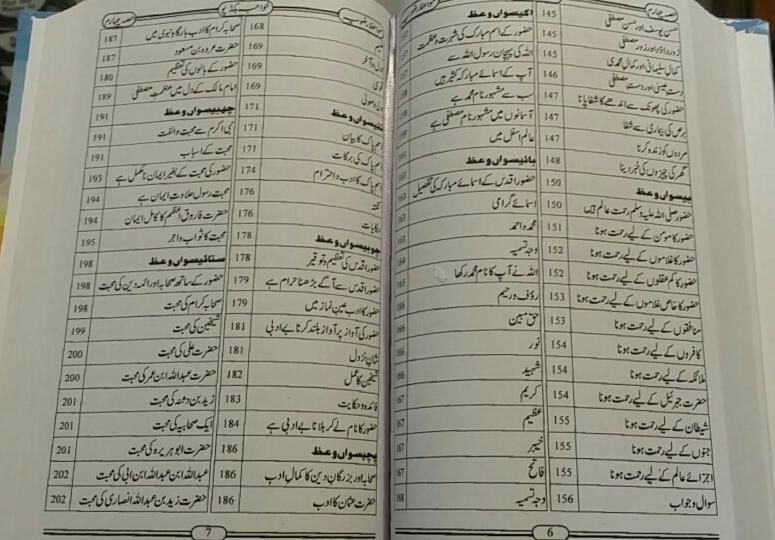 حصہ چہارم
حسن یوسف اور حسن مصطفیٰ 145
زور داؤد اور زور مصطفیٰ 145
کمال سلیمانی اور کمال محمدی 145
دست عیسیٰ اور دست مصطفیٰ 146
حضور کی پھونک سے اندھے کا شفا پانا 147
برص کی بیماری سے شفا 147
مردوں کو زندہ کرنا 147
گھر کی چیزوں کی خبر دینا 148
بیسواں وعظ 150
حضور صلی اللہ علیہ وسلم رحمت عالم ہیں 150
حضور کا مومن کے لیے رحمت ہونا 151
حضور کا غلاموں کے لیے رحمت ہونا 152
حضور کا کم عقلوں کے لیے رحمت ہونا 152
حضور کا خاص غلاموں کے لیے رحمت ہونا 153
منافقوں کے لیے رحمت ہونا 153
کافروں کے لیے رحمت ہونا 154
ملائکہ کے لیے رحمت ہونا 154
حضرت جبرئیل کے لیے رحمت ہونا 154
شیطان کے لیے رحمت ہونا 155
جنوں کے لیے رحمت ہونا 155
اجزائے عالم کے لیے رحمت ہونا 155
سوال و جواب 156
اکیسواں وعظ
حضور کے اسم مبارک کی شہرت و عظمت
اللہ کی پہچان رسول اللہ سے
آپ کے اسمائے مبارکہ کثیر ہیں
سب سے مشہور نام محمد ہے
آسمانوں میں مشہور نام مصطفیٰ ہے
عالم اسفل میں
بائیسواں وعظ
حضور اقدس کے اسمائے مبارکہ کی تفصیل
اسمائے گرامی
محمد و احمد
وجہ تسمیہ
اللہ نے آپ کا نام محمد رکھا
رؤف و رحیم
حق مبین
نور 166
شہید 166
کریم 167
عظیم 167
خبیر 167
فاتح 167
وجہ تسمیہ 168
6
خواجہ بکڈپو
مواعظ رضویہ
168
169
169
169
171
اسم پاک کا بیان 171
اسم پاک کی برکات 171
اسم پاک کا ادب و احترام 174
176
حکایات 176
چوبیسواں وعظ 178
حضور اقدس کی تعظیم و توقیر 178
حضور اقدس سے آگے بڑھنا حرام ہے 179
حضور کا ادب عین نماز میں 179
حضور کی آواز پر آواز بلند کرنا بے ادبی 181
شان نزول 181
شیخین کا عمل 182
فائدہ و حکایت 183
حضور کا نام لے کر بلانا بے ادبی ہے 184
پچیسواں وعظ 186
صحابہ اور بزرگان دین کا کمال ادب 186
حضرت عثمان کا ادب 186
حصہ چہارم
صحابہ کرام کا ادب بارگاہ نبوی میں 187
حضرت عروہ بن مسعود 187
حضور کے بالوں کی تعظیم 180
امام مالک کے دل میں عظمت مصطفیٰ 189
چھبیسواں وعظ 191
نبی اکرم سے محبت و الفت 191
محبت کے اسباب 191
حضور کی محبت کے بغیر ایمان نامکمل ہے 193
محبت رسول حلاوت ایمان ہے 194
حضرت فاروق اعظم کا کامل ایمان 194
محبت کا ثواب و اجر 195
ستائیسواں وعظ 198
حضور کے ساتھ صحابہ اور ائمہ دین کی محبت 198
صحابہ کرام کی محبت 198
شیخین کی محبت 199
حضرت علی کی محبت 200
حضرت عبداللہ ابن عمر کی محبت 200
زید بن دثنہ کی محبت 201
ایک صحابیہ کی محبت 201
حضرت ابو ہریرہ کی محبت 201
عبداللہ ابن عبداللہ ابن ابی کی محبت 202
حضرت زید بن عبداللہ انصاری کی محبت 202
7